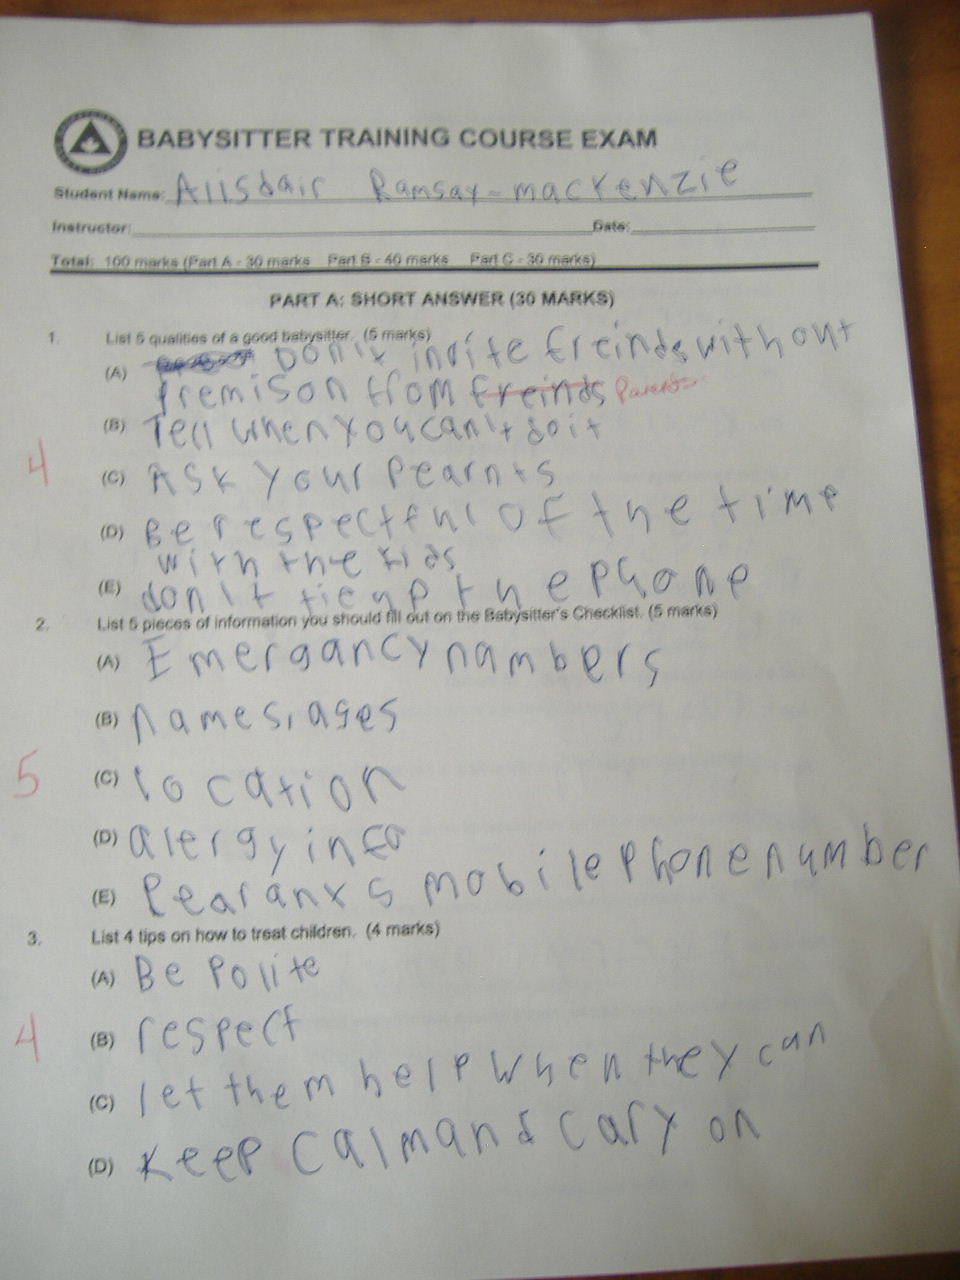 BABYSITTER TRAINING COURSE EXAM
Student Name: Alisdair Ramsay-mackenzie
Instructor: Date:
Total: 100 marks (Part A - 30 marks Part B - 40 marks Part C - 30 marks)
PART A: SHORT ANSWER (30 MARKS)
1. List 5 qualities of a good babysitter. (5 marks)
(A) Don't invite freinds without
premison from freinds Parents
(B) Tell when you can't do it
4
(C) Ask your pearnts
(D) Be respectful of the time
with the kids
(E) don't tie up the phone
2. List 5 pieces of information you should fill out on the Babysitter's Checklist. (5 marks)
(A) Emergancy numbers
(B) names, ages
5
(C) location
(D) alergy info
(E) Pearants mobile phone number
3. List 4 tips on how to treat children. (4 marks)
(A) Be Polite
4
(B) respect
(C) let them help when they can
(D) Keep calm and cary on